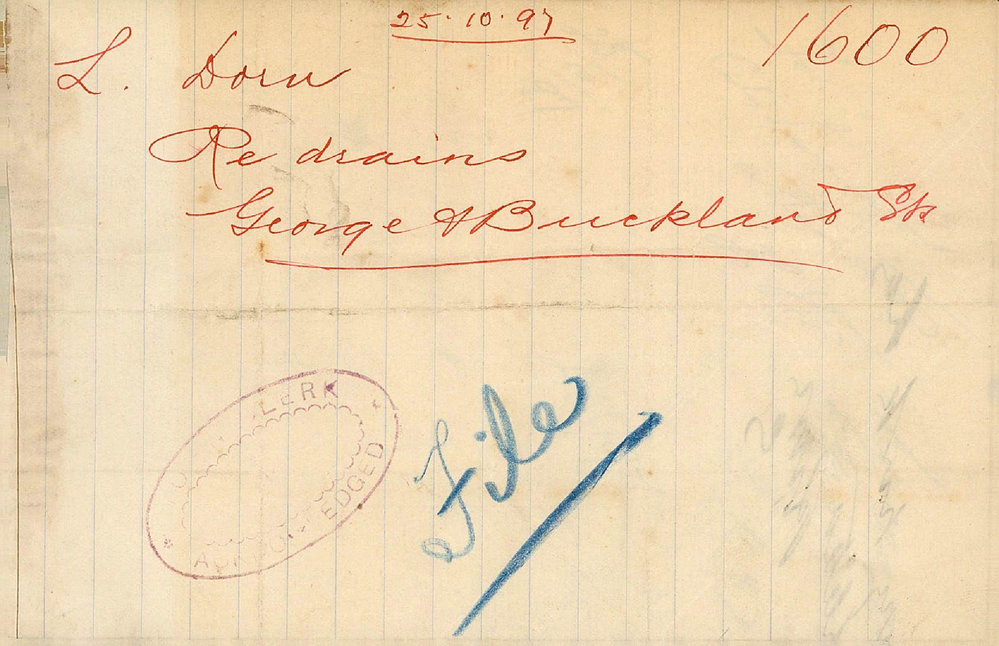 25.10.97
1600
L. Dorn
Re drains
George & Buckland Sts
CLERK
ACKNOWLEDGED
File